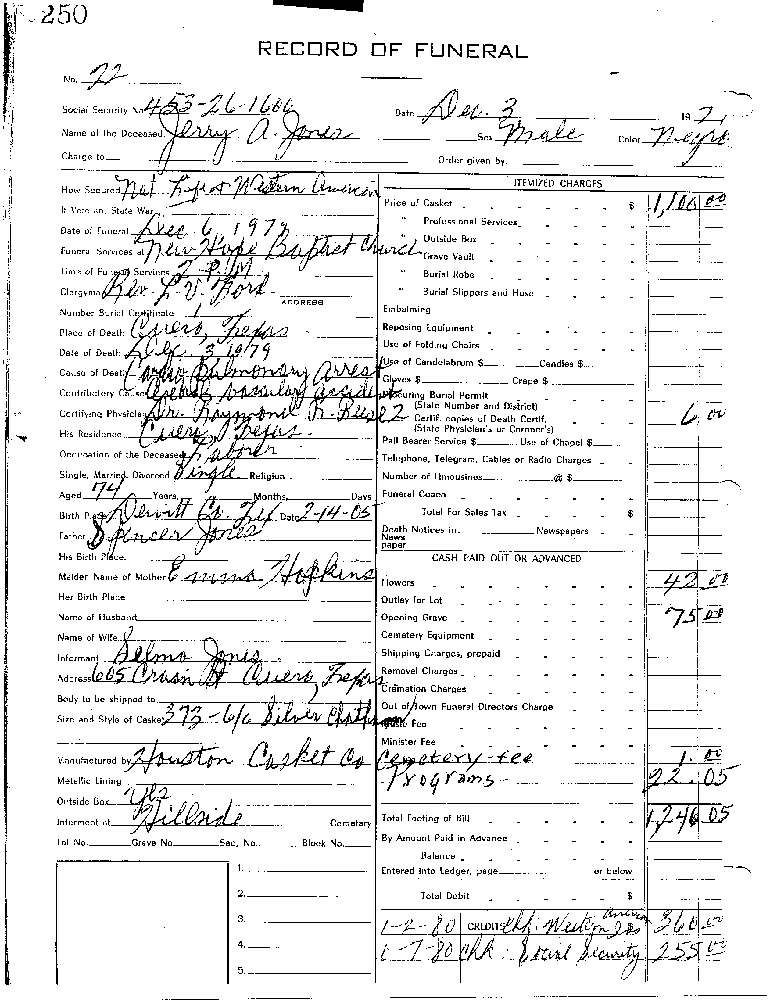 250
RECORD OF FUNERAL
No. 22
Social Security No. 453-26-1600 Date Dec. 3 197
Name of the Deceased Jerry A. Jones Sex Male Color Negro
Charge to Order given by
How Secured Nat. Western American
If Veteran, State War
Date of Funeral Dec 6, 1979
Funeral Services at New Hope Baptist Church
Time of Funeral Services 2 P.M
Clergyman Rev. L. V. Ford ADDRESS
Number Burial Certificate
Place of Death Cuero, Texas
Date of Death Dec. 3 1979
Cause of Death Cardio Pulmonary Arrest
Contributory Cause Cerebral Vascular accident
Certifying Physician Dr. Raymond R. Reese
His Residence Cuero, Texas.
Occupation of the Deceased Laborer
Single, Married, Divorced Single Religion
Aged 74 Years, Months, Days
Birth Place Dewitt Co. Tex Date 2-14-05
Father Spencer Jones
His Birth Place
Maiden Name of Mother Emma Hopkins
Her Birth Place
Name of Husband
Name of Wife
Informant Selma Jones
Address 605 St Cuero, Texas
Body to be shipped to
Size and Style of Casket 373-6/6 Silver
Manufactured by Houston Casket Co
Metallic Lining
Outside Box Yes
Interment at Hillside Cemetery
Lot No. Grave No. Sec. No. Block No.
1.
2.
3.
4.
5.
ITEMIZED CHARGES
Price of Casket $ 1,100 00
" Professional Services
" Outside Box
" Grave Vault
" Burial Robe
" Burial Slippers and Hose
Embalming
Reposing Equipment
Use of Folding Chairs
Use of Candelabrum $ Candles $
Gloves $ Crepe $
Procuring Burial Permit
(State Number and District)
2 Certif. copies of Death Certif. 6 00
(State Physician's or Coroner's)
Pall Bearer Service $ Use of Chapel $
Telephone, Telegram, Cables or Radio Charges
Number of Limousines @ $
Funeral Coach
Total For Sales Tax $
Death Notices in Newspapers
News
paper
CASH PAID OUT OR ADVANCED
Flowers 42 00
Outlay for Lot
Opening Grave 75 00
Cemetery Equipment
Shipping Charges, prepaid
Removal Charges
Cremation Charges
Out of Town Funeral Directors Charge
Music Fee
Minister Fee
Cemetery fee 1. 00
Programs 22.05
Total Footing of Bill 1,246 05
By Amount Paid in Advance
Balance
Entered into Ledger, page or below
Total Debit $
1-2-80 CREDITS Chk. Western American Ins 360.00
1-7-80 Chk. Social Security 255 00